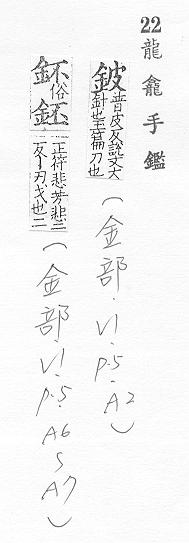 22 龍龕手鑑
鈹 普皮反說文大針也又兩刃刀也
(金部.V1.p.5.A2)
鉟俗鉟 正符悲芳悲二反刃戈也二
(金部.V1.p.5.A6 5 A7)